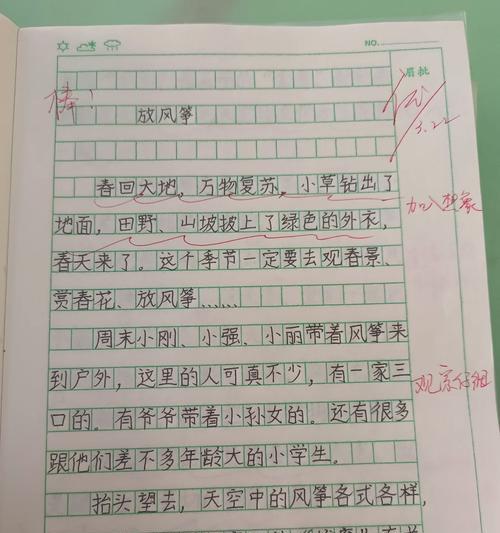 NO.
眉批
棒！
优
放风筝
3.22
春回大地，万物复苏，小草钻出了
加入想象
地面，田野、山坡披上了绿色的外衣，
春天来了。这个季节一定要去观春景、
赏春花、放风筝……
周末小刚、小强、小丽带着风筝来
到户外，这里的人可真不少，有一家三
观察仔细
口的。有爷爷带着小孙女的。还有很多
跟他们差不多年龄大的小学生。
抬头望去，天空中的风筝各式各样，